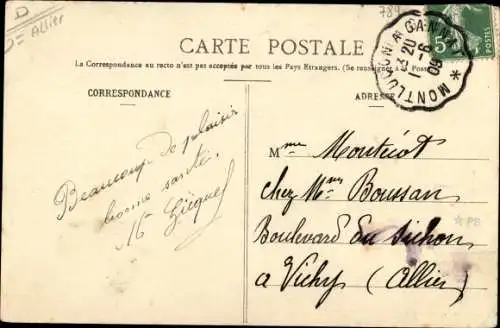 D
D=
Allier
789
5
MONTLUÇON A GANNAT
3 20
1 - 6
09
*
CARTE POSTALE
La Correspondance au recto n'est pas acceptée par tous les Pays Etrangers. (Se renseigner à la Poste)
CORRESPONDANCE
ADRESSE
Beaucoup de plaisir
bonne santé,
Mme Montréot
chez Mme Boussan
Boulevard du Sichon
a Vichy (Allier)
PB